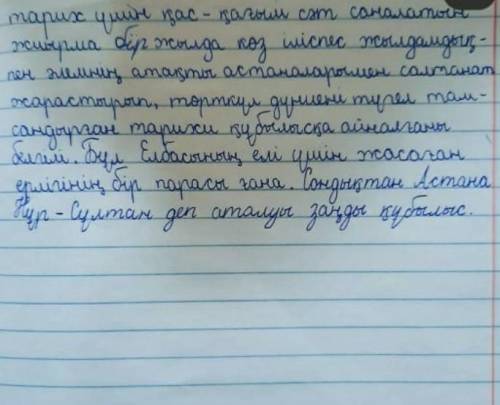 тарих үшін қас-қағым сәт саналатын
жиырма бір жылда көз ілеспес жылдамдық-
пен әлемнің атақты астаналарымен салтанат
жарастырып, төрткүл дүниені түгел там-
сандырған тарихи құбылысқа айналғаны
белгілі. Бұл Елбасының елі үшін жасаған
ерлігінің бір парасы ғана. Сондықтан Астана
Нұр-Сұлтан деп аталуы заңды құбылыс.